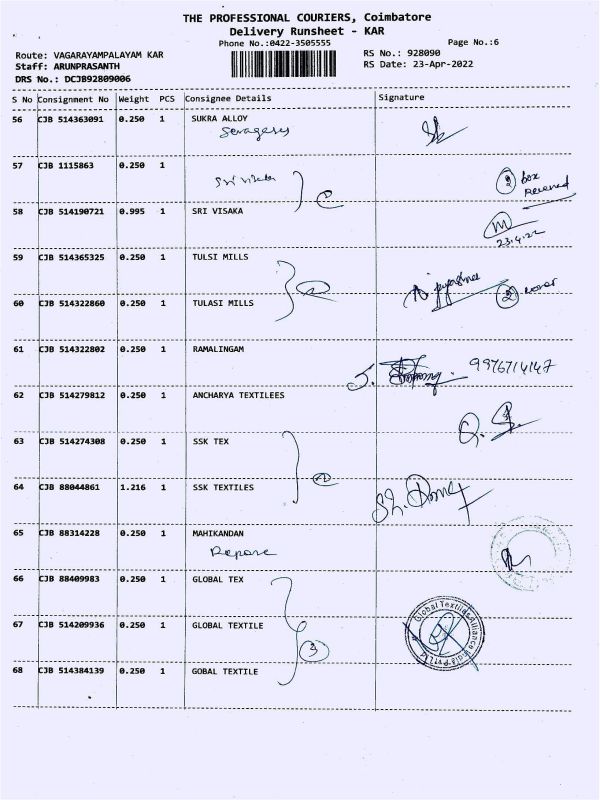 THE PROFESSIONAL COURIERS, Coimbatore
Delivery Runsheet - KAR
Phone No.:0422-3505555
Page No.:6
Route: VAGARAYAMPALAYAM KAR
RS No.: 928090
Staff: ARUNPRASANTH
RS Date: 23-Apr-2022
DRS No.: DCJB92809006
S No Consignment No Weight PCS Consignee Details Signature
56 CJB 514363091 0.250 1 SUKRA ALLOY
57 CJB 1115863 0.250 1
Sri visaka
2 box
Received
58 CJB 514190721 0.995 1 SRI VISAKA
23.4.22
59 CJB 514365325 0.250 1 TULSI MILLS
2
60 CJB 514322860 0.250 1 TULASI MILLS
61 CJB 514322802 0.250 1 RAMALINGAM
9976714147
62 CJB 514279812 0.250 1 ANCHARYA TEXTILEES
63 CJB 514274308 0.250 1 SSK TEX
64 CJB 88044861 1.216 1 SSK TEXTILES
65 CJB 88314228 0.250 1 MAHIKANDAN
66 CJB 88409983 0.250 1 GLOBAL TEX
67 CJB 514209936 0.250 1 GLOBAL TEXTILE
3
Global Textile Alliance India Pvt Ltd
68 CJB 514384139 0.250 1 GOBAL TEXTILE